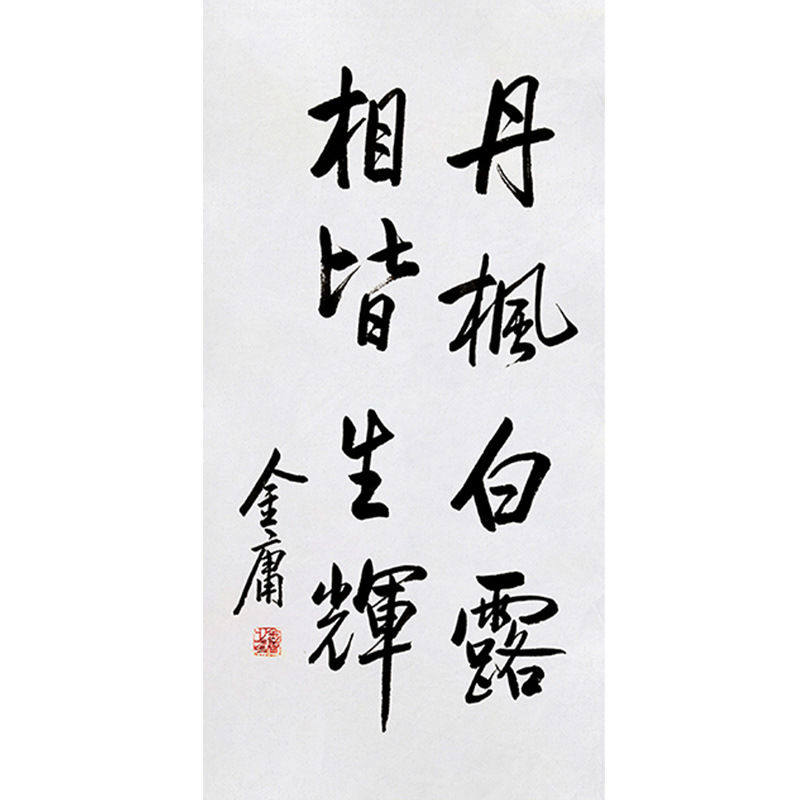 丹楓白露
相皆生輝
金庸